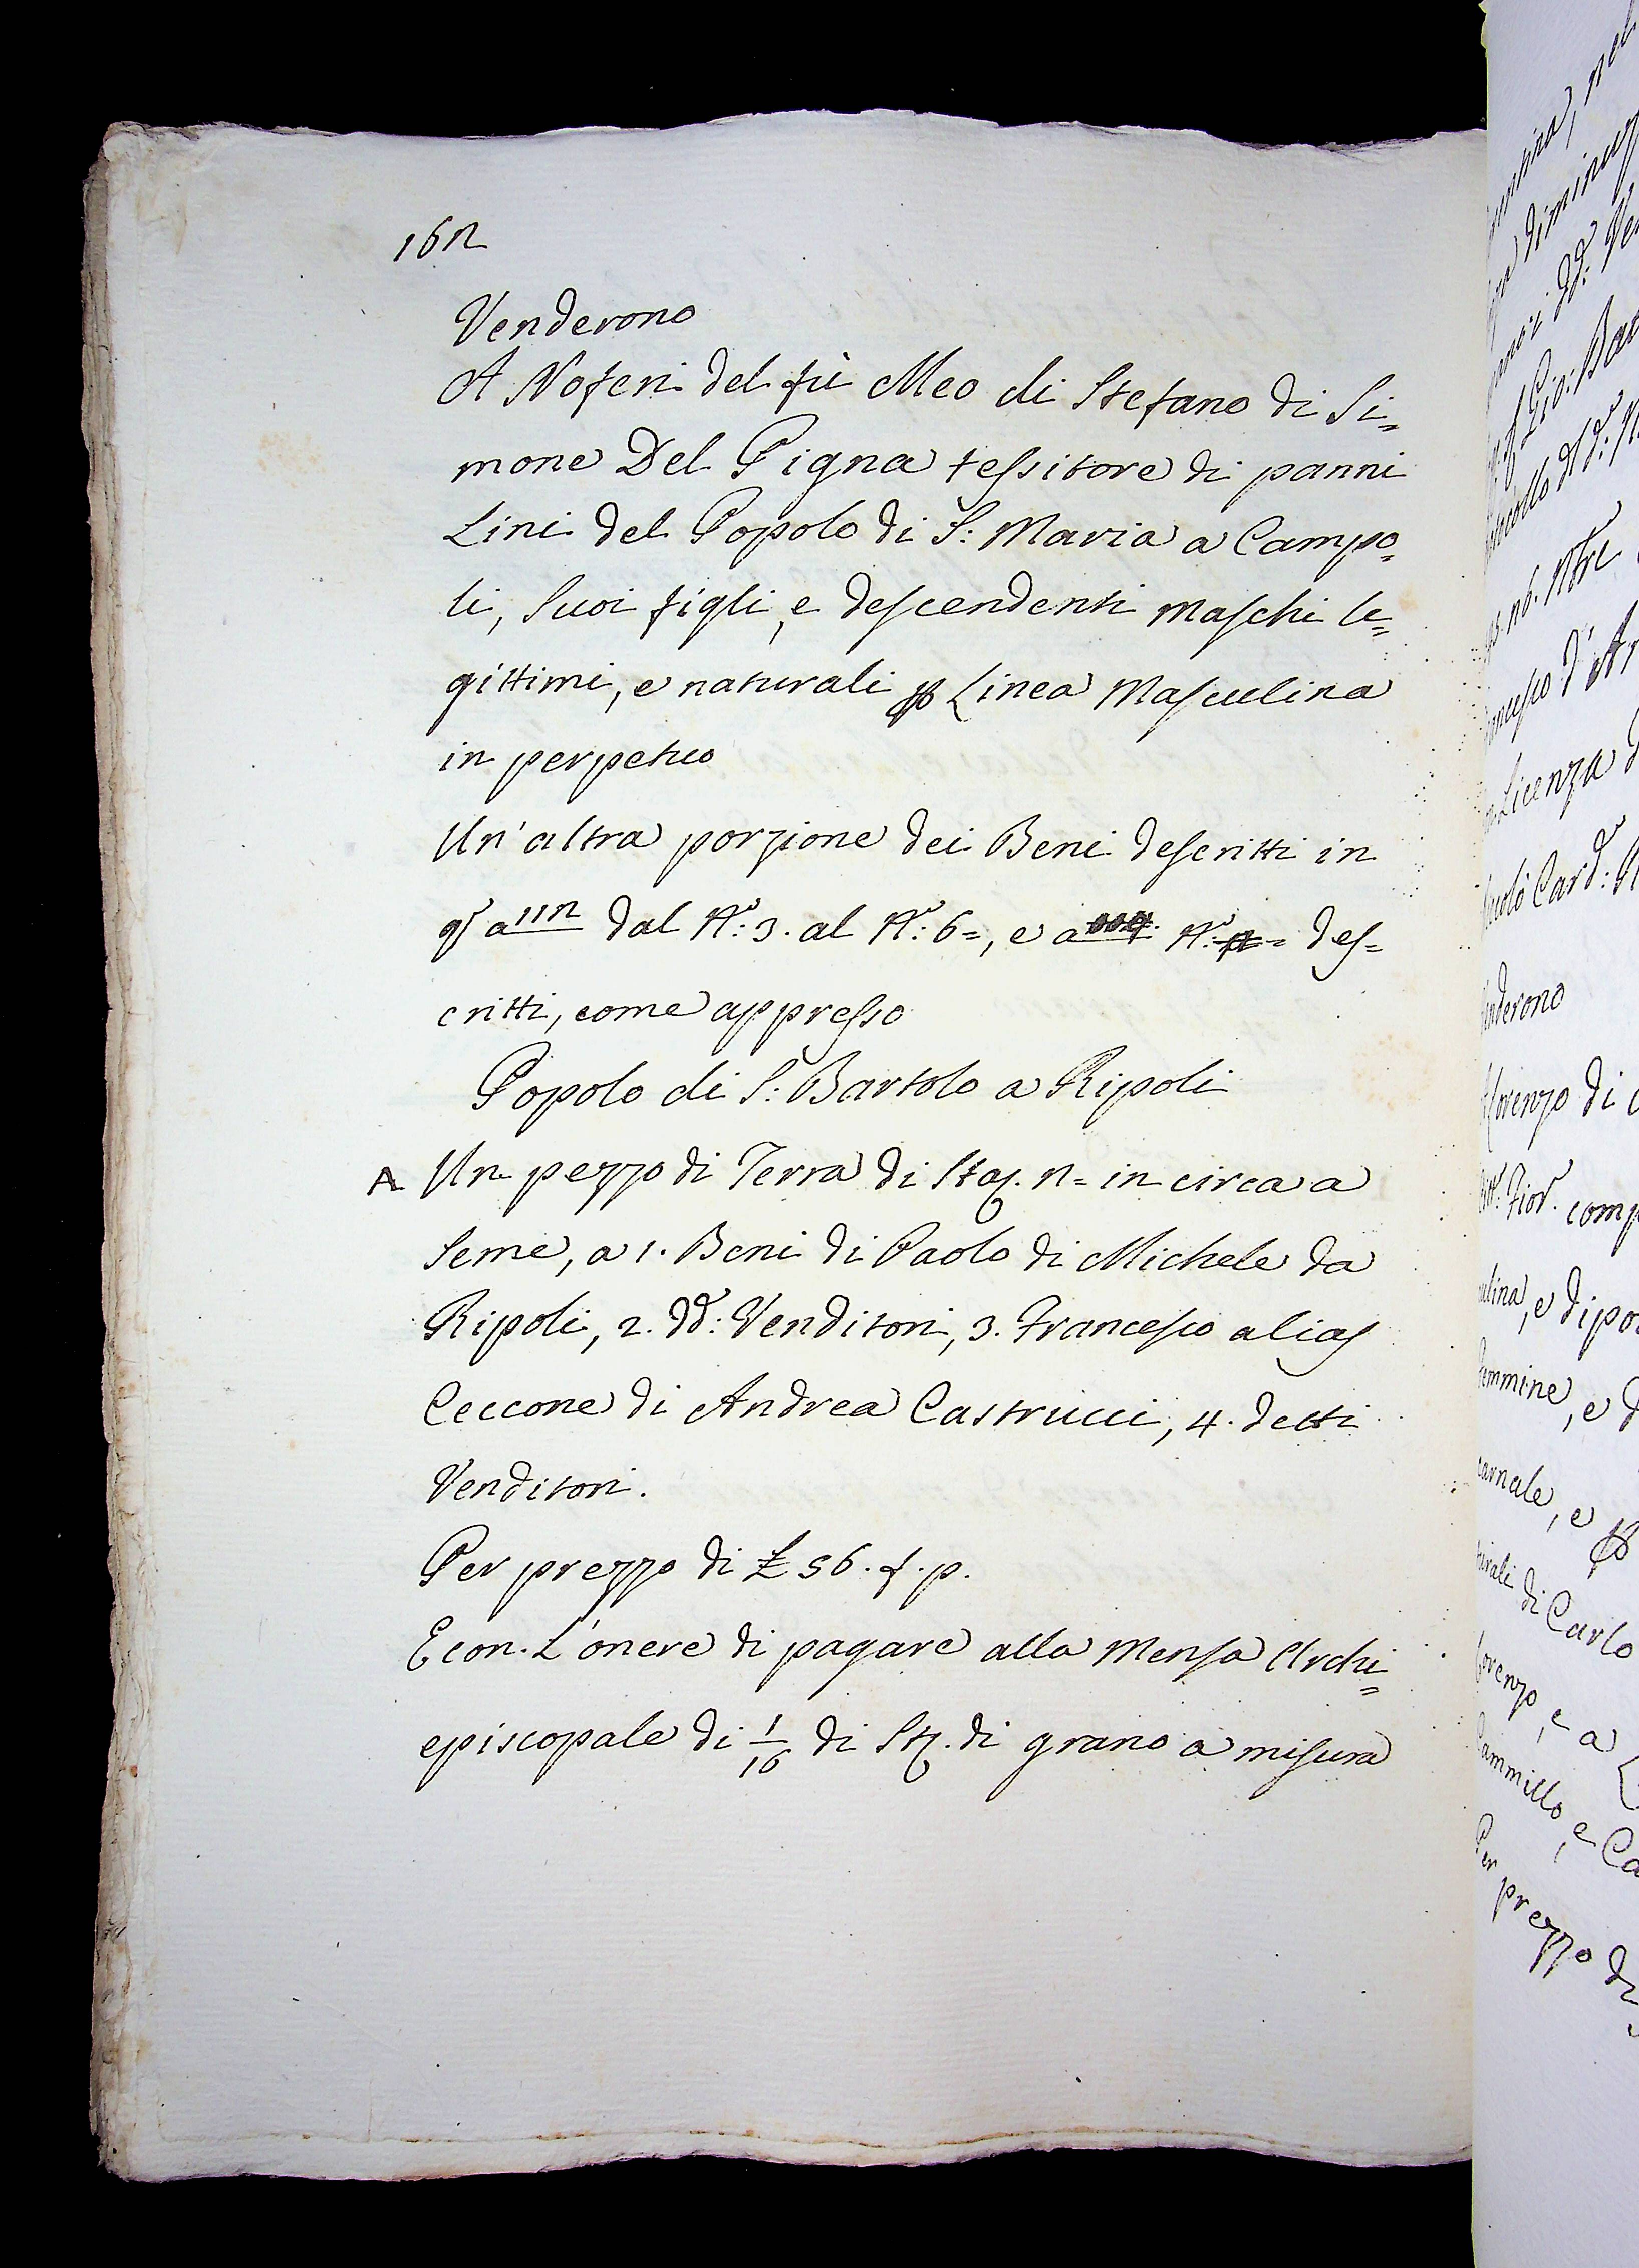 162
Venderono
A Noferi del fù Meo di Stefano di Si=
mone Del Pigna tessitore di panni
Lini del Popolo di S: Maria a Campo=
li, Suoi figli, e descendenti Maschi le=
gittimi, e naturali p Linea Masculina
in perpetuo
Un'altra porzione dei Beni descritti in
qº a 112 dal Nº: 3. al Nº: 6=, e a Nº: = des=
critti, come appresso
Popolo di S: Bartolo a Ripoli
A Un pezzo di Terra di Staj. 2= in circa a
Seme, a 1. Beni di Paolo di Michele da
Ripoli, 2. dd: Venditori, 3. Francesco alias
Ceccone di Andrea Castrucci, 4. detti
Venditori.
Per prezzo di £ 56. f. p.
E con L'onere di pagare alla Mensa Archi=
episcopale di 1/16 di Stj. di grano a misura
diminuz
Gio: Bar
Licenza d
Card:
Venderono
Lorenzo di
Fior. comp
e dipo
femmine, e d
carnale, e p
di Carlo
Lorenzo, e a
Cammillo, e Ca
Per prezzo di